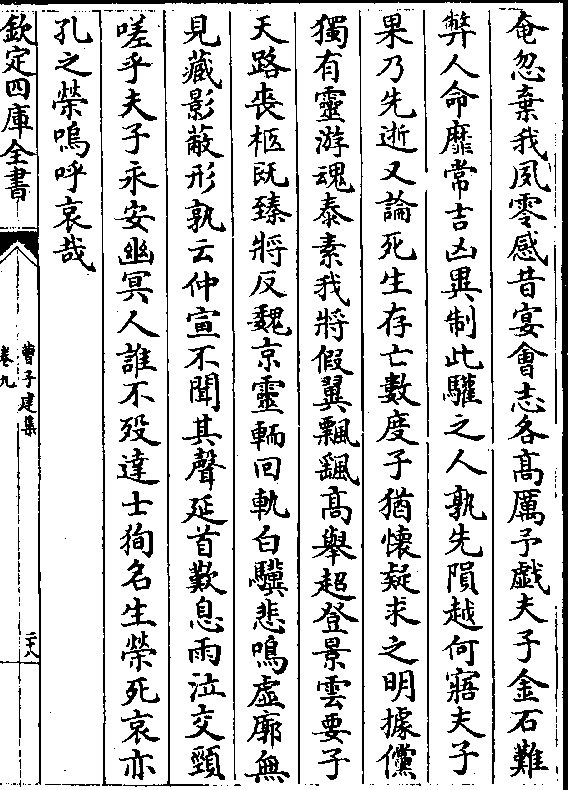 奄忽棄我夙零感昔宴會志各髙厲予戯夫子金石難
弊人命靡常吉凶異制此驩之人孰先隕越何寤夫子
果乃先逝又論死生存亡數度子猶懷疑求之明據儻
獨有靈游魂泰素我將假翼飄飖髙舉超登景雲要子
天路喪柩既臻將反魏京靈輀回軌白驥悲鳴虚廓無
見藏影蔽形孰云仲宣不聞其聲延首歎息雨泣交頸
嗟乎夫子永安幽冥人誰不殁達士徇名生榮死哀亦
孔之榮嗚呼哀哉
欽定四庫全書
曹子建集
卷九
二十八